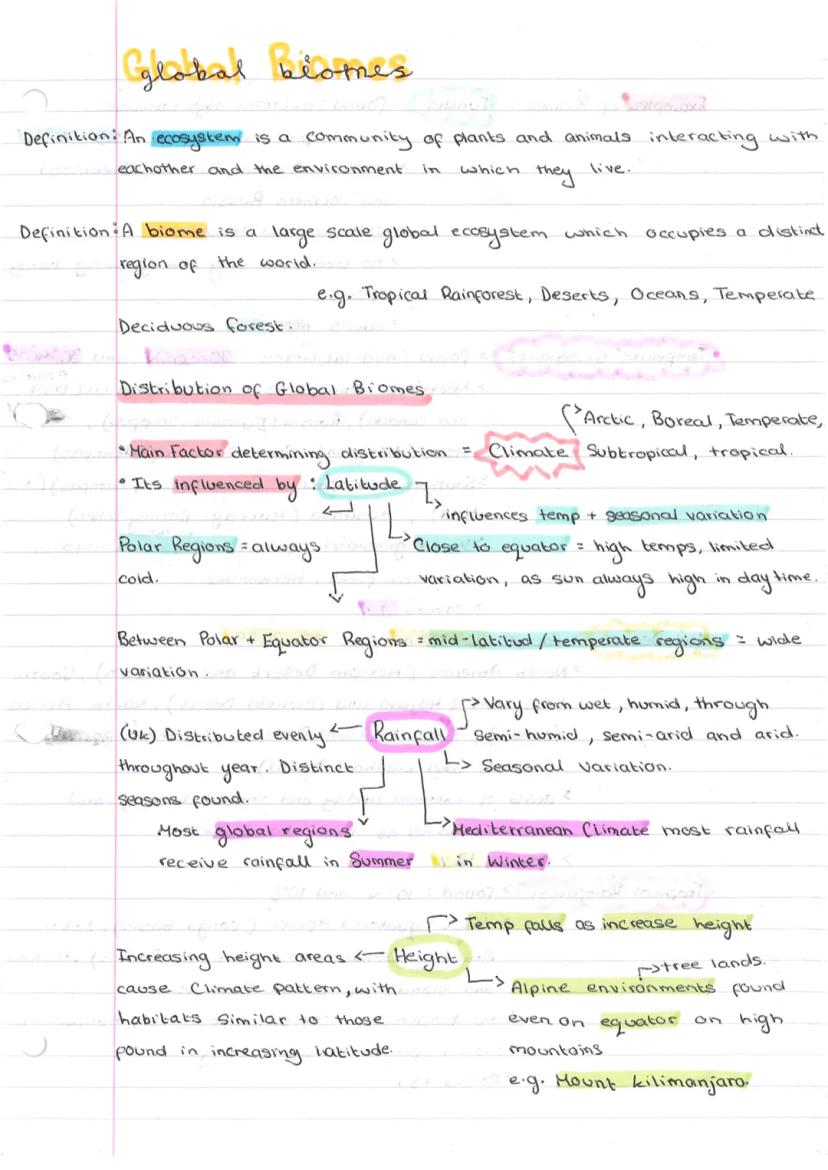 Global Biomes
global biomes
Definition: An ecosystem is a community of plants and animals interacting with
eachother and the environment in which they live.
Definition: A biome is a large scale global ecosystem which occupies a distinct
region of the world.
e.g. Tropical Rainforest, Deserts, Oceans, Temperate
Deciduous forest.
Distribution of Global Biomes
→ Arctic, Boreal, Temperate,
• Main Factor determining distribution = Climate Subtropical, tropical.
• Its influenced by : Latitude
→ influences temp + seasonal variation
Polar Regions = always
cold.
→ Close to equator = high temps, limited
variation, as sun always high in daytime.
Between Polar + Equator Regions = mid-latitud / temperate regions = wide
variation.
→ Vary from wet, humid, through
semi-humid, semi-arid and arid.
(UK) Distributed evenly ← Rainfall
throughout year. Distinct
seasons found.
→ Seasonal variation.
Most global regions
receive rainfall in Summer
→ Mediterranean Climate most rainfall
in Winter.
→ Temp falls as increase height
Increasing height areas ← Height
cause Climate pattern, with
habitats similar to those
found in increasing latitude.
→ tree lands.
→ Alpine environments found
even on equator on high
mountains
e.g. Mount kilimanjaro.